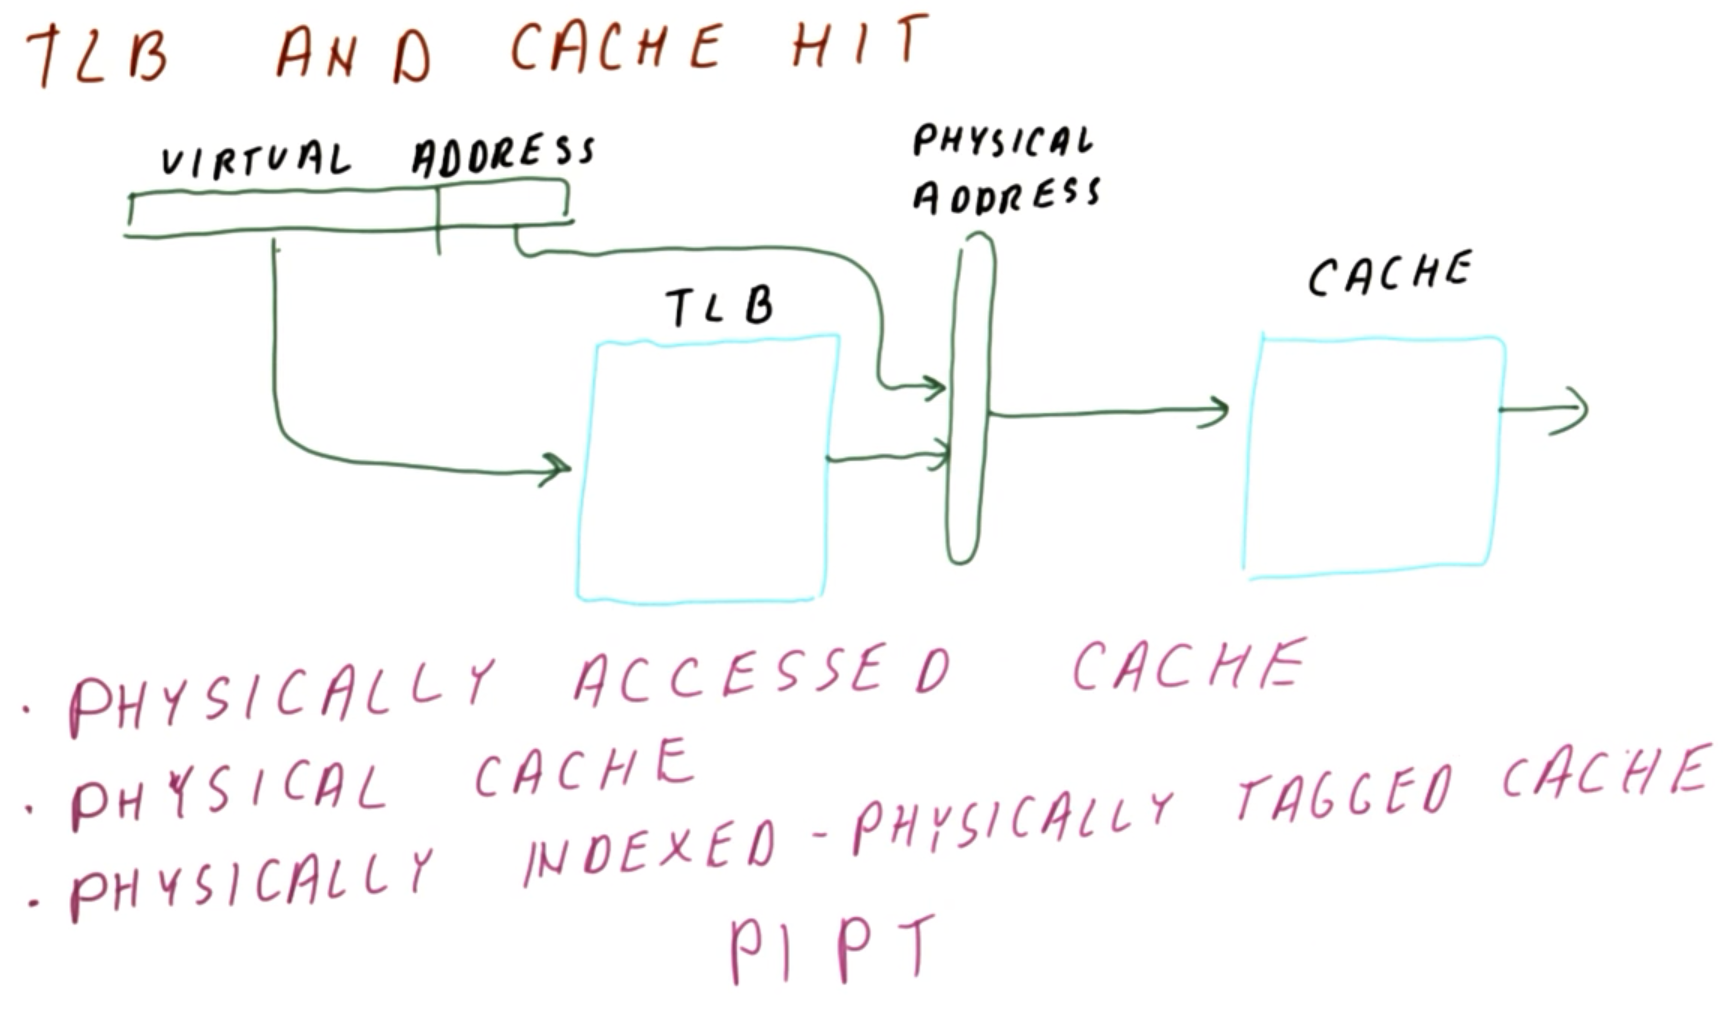 TLB AND CACHE HIT
VIRTUAL ADDRESS
PHYSICAL
ADDRESS
TLB
CACHE
· PHYSICALLY ACCESSED CACHE
· PHYSICAL CACHE
· PHYSICALLY INDEXED - PHYSICALLY TAGGED CACHE
PIPT